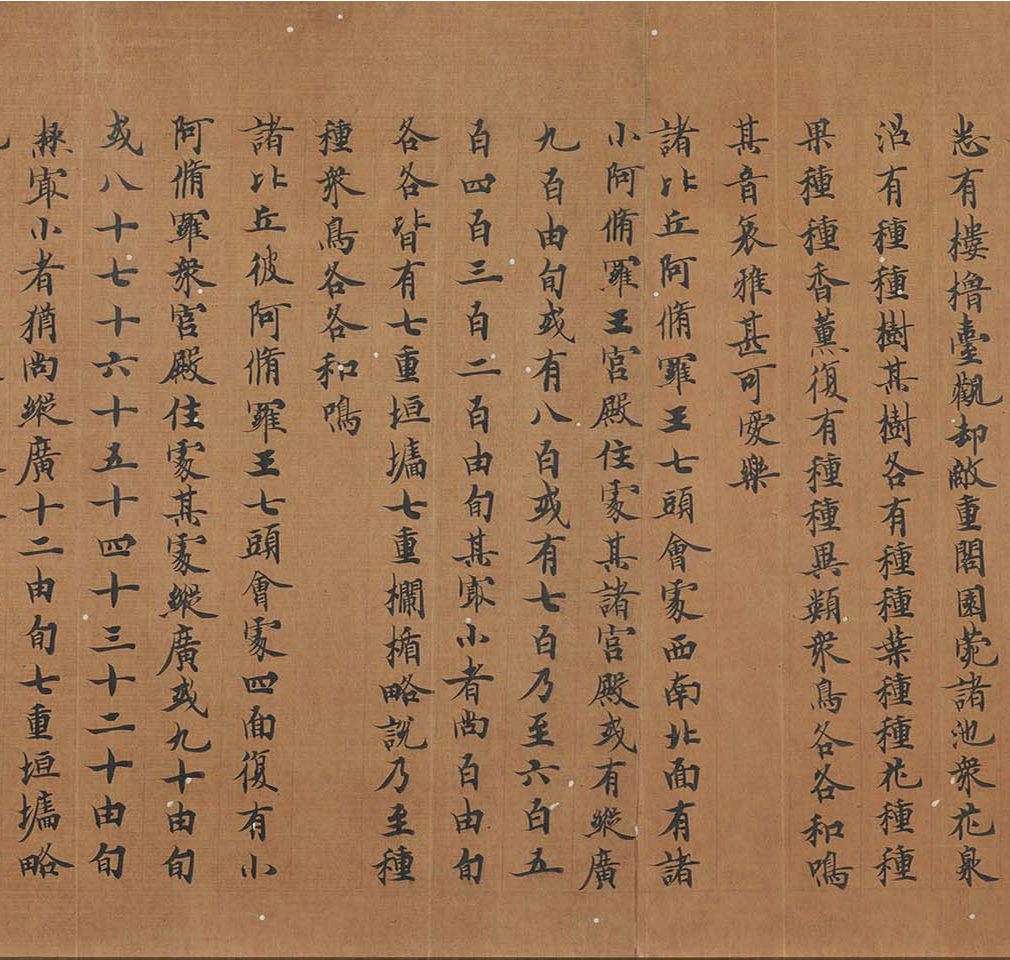 悉有樓櫓臺觀却敵重閣園菀諸池衆花泉
沼有種種樹其樹各有種種葉種種花種種
果種種香薰復有種種異類衆鳥各各和鳴
其音哀雅甚可愛樂
諸比丘阿脩羅王七頭會處西南北面有諸
小阿脩羅王宮殿住處其諸宮殿或有縱廣
九百由旬或有八百或有七百乃至六百五
百四百三百二百由旬其寂小者尚百由旬
各各皆有七重垣墻七重欄楯略說乃至種
種衆鳥各各和鳴
諸比丘彼阿脩羅王七頭會處四面復有小
阿脩羅衆宮殿住處其處縱廣或九十由旬
或八十七十六十五十四十三十二十由旬
極寂小者猶尚縱廣十二由旬七重垣墻略